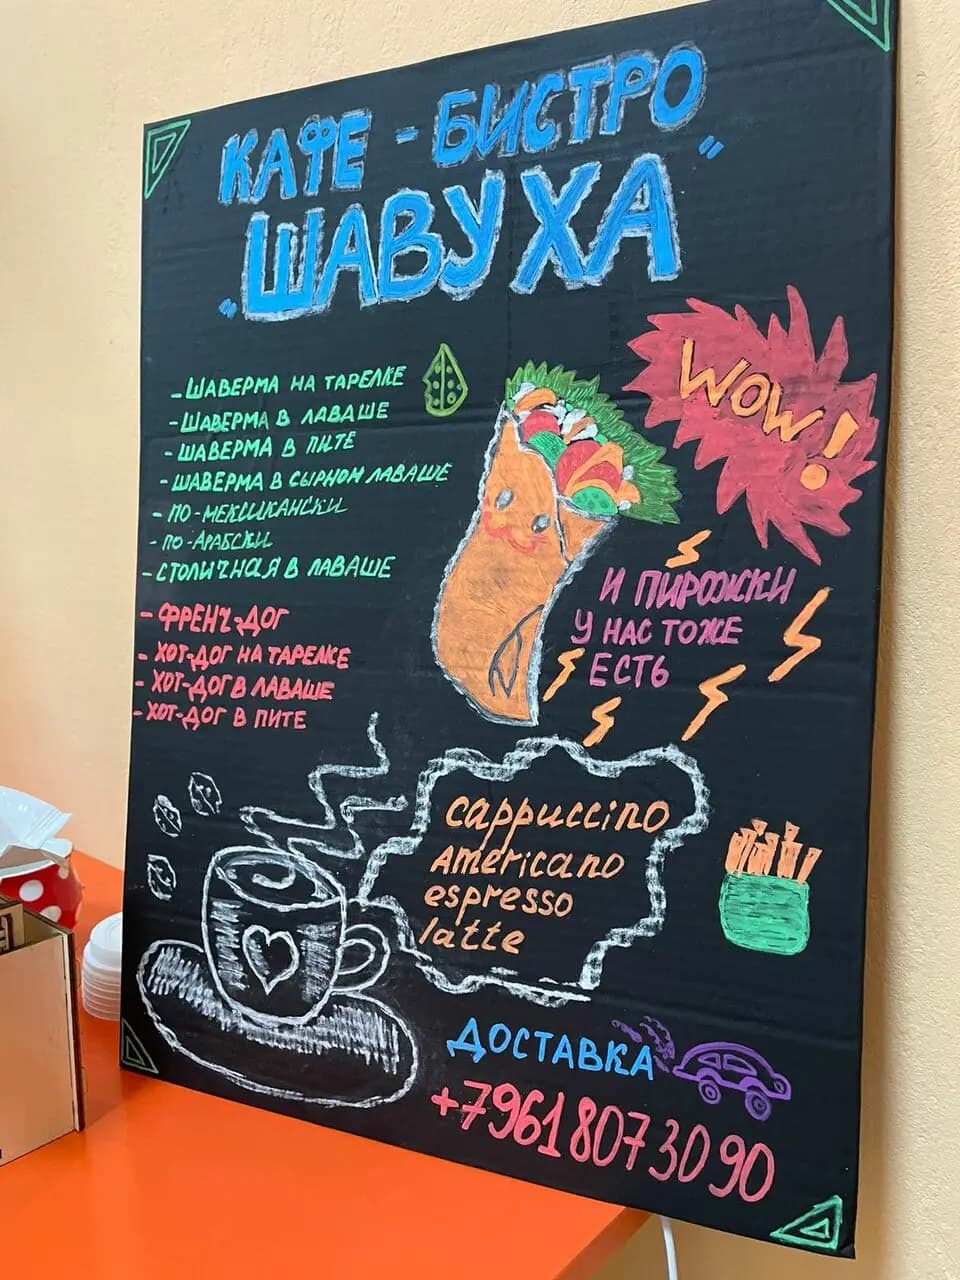 КАФЕ - БИСТРО
"ШАВУХА"
- ШАВЕРМА НА ТАРЕЛКЕ
- ШАВЕРМА В ЛАВАШЕ
- ШАВЕРМА В ПИТЕ
- ШАВЕРМА В СЫРНОМ ЛАВАШЕ
- ПО-МЕКСИКАНСКИ
- ПО-АРАБСКИ
- СТОЛИЧНАЯ В ЛАВАШЕ
- ФРЕНЧ-ДОГ
- ХОТ-ДОГ НА ТАРЕЛКЕ
- ХОТ-ДОГ В ЛАВАШЕ
- ХОТ-ДОГ В ПИТЕ
WOW!
И ПИРОЖКИ
У НАС ТОЖЕ
ЕСТЬ
cappuccino
Americano
espresso
latte
ДОСТАВКА
+79618073090